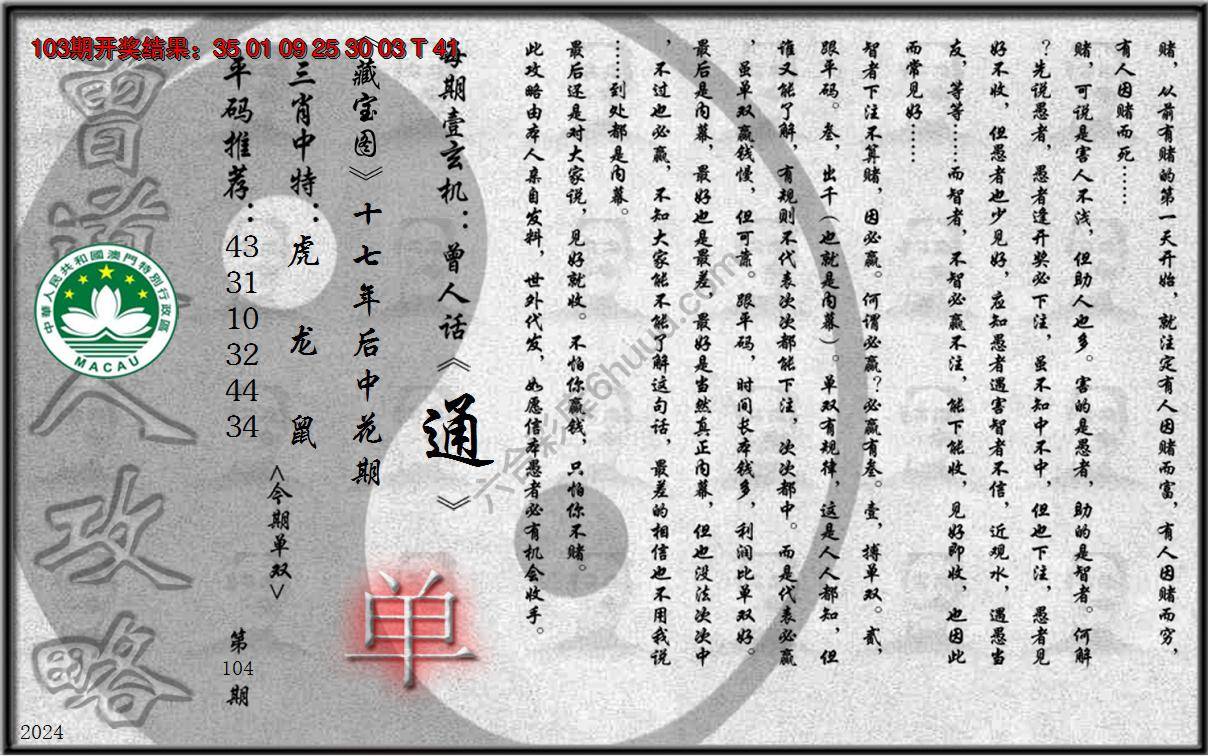 103期开奖结果：35 01 09 25 30 03 T 41
赌，从前有赌的第一天开始，就注定有人因赌而富，有人因赌而穷，
有人因赌而死……
赌，可说是害人不浅，但助人也多。害的是愚者，助的是智者。何解
？先说愚者，愚者逢开奖必下注，虽不知中不中，但也下注，愚者见
好不收，但愚者也少见好，应知愚者遇害智者不信，近观水，遇愚当
友，等等……而智者，不智必赢不注，能下能收，见好即收，也因此
而常见好……
智者下注不算赌，因必赢。何谓必赢？必赢有叁。壹，搏单双。贰，
跟平码。叁，出千（也就是内幕）。单双有规律，这是人人都知，但
谁又能了解，有规则不代表次次都能下注，次次都中。而是代表必赢
，虽单双赢钱慢，但可靠。跟平码，时间长本钱多，利润比单双好。
最后是内幕，最好也是最差，最好是当然真正内幕，但也没法次次中
，不过也必赢，不知大家能不能了解这句话，最差的相信也不用我说
……到处都是内幕。
最后还是对大家说，见好就收。不怕你赢钱，只怕你不赌。
此攻略由本人亲自发料，世外代发，如愿信本愚者必有机会收手。
每期壹玄机：曾人话《通》
《藏宝图》十七年后中花期
三肖中特：虎 龙 鼠
平码推荐：
43
31
10
32
44
34
<今期单双>
单
第
104
期
曾道人攻略
中華人民共和國澳門特別行政區
MACAU
六合彩库6huu.com
2024